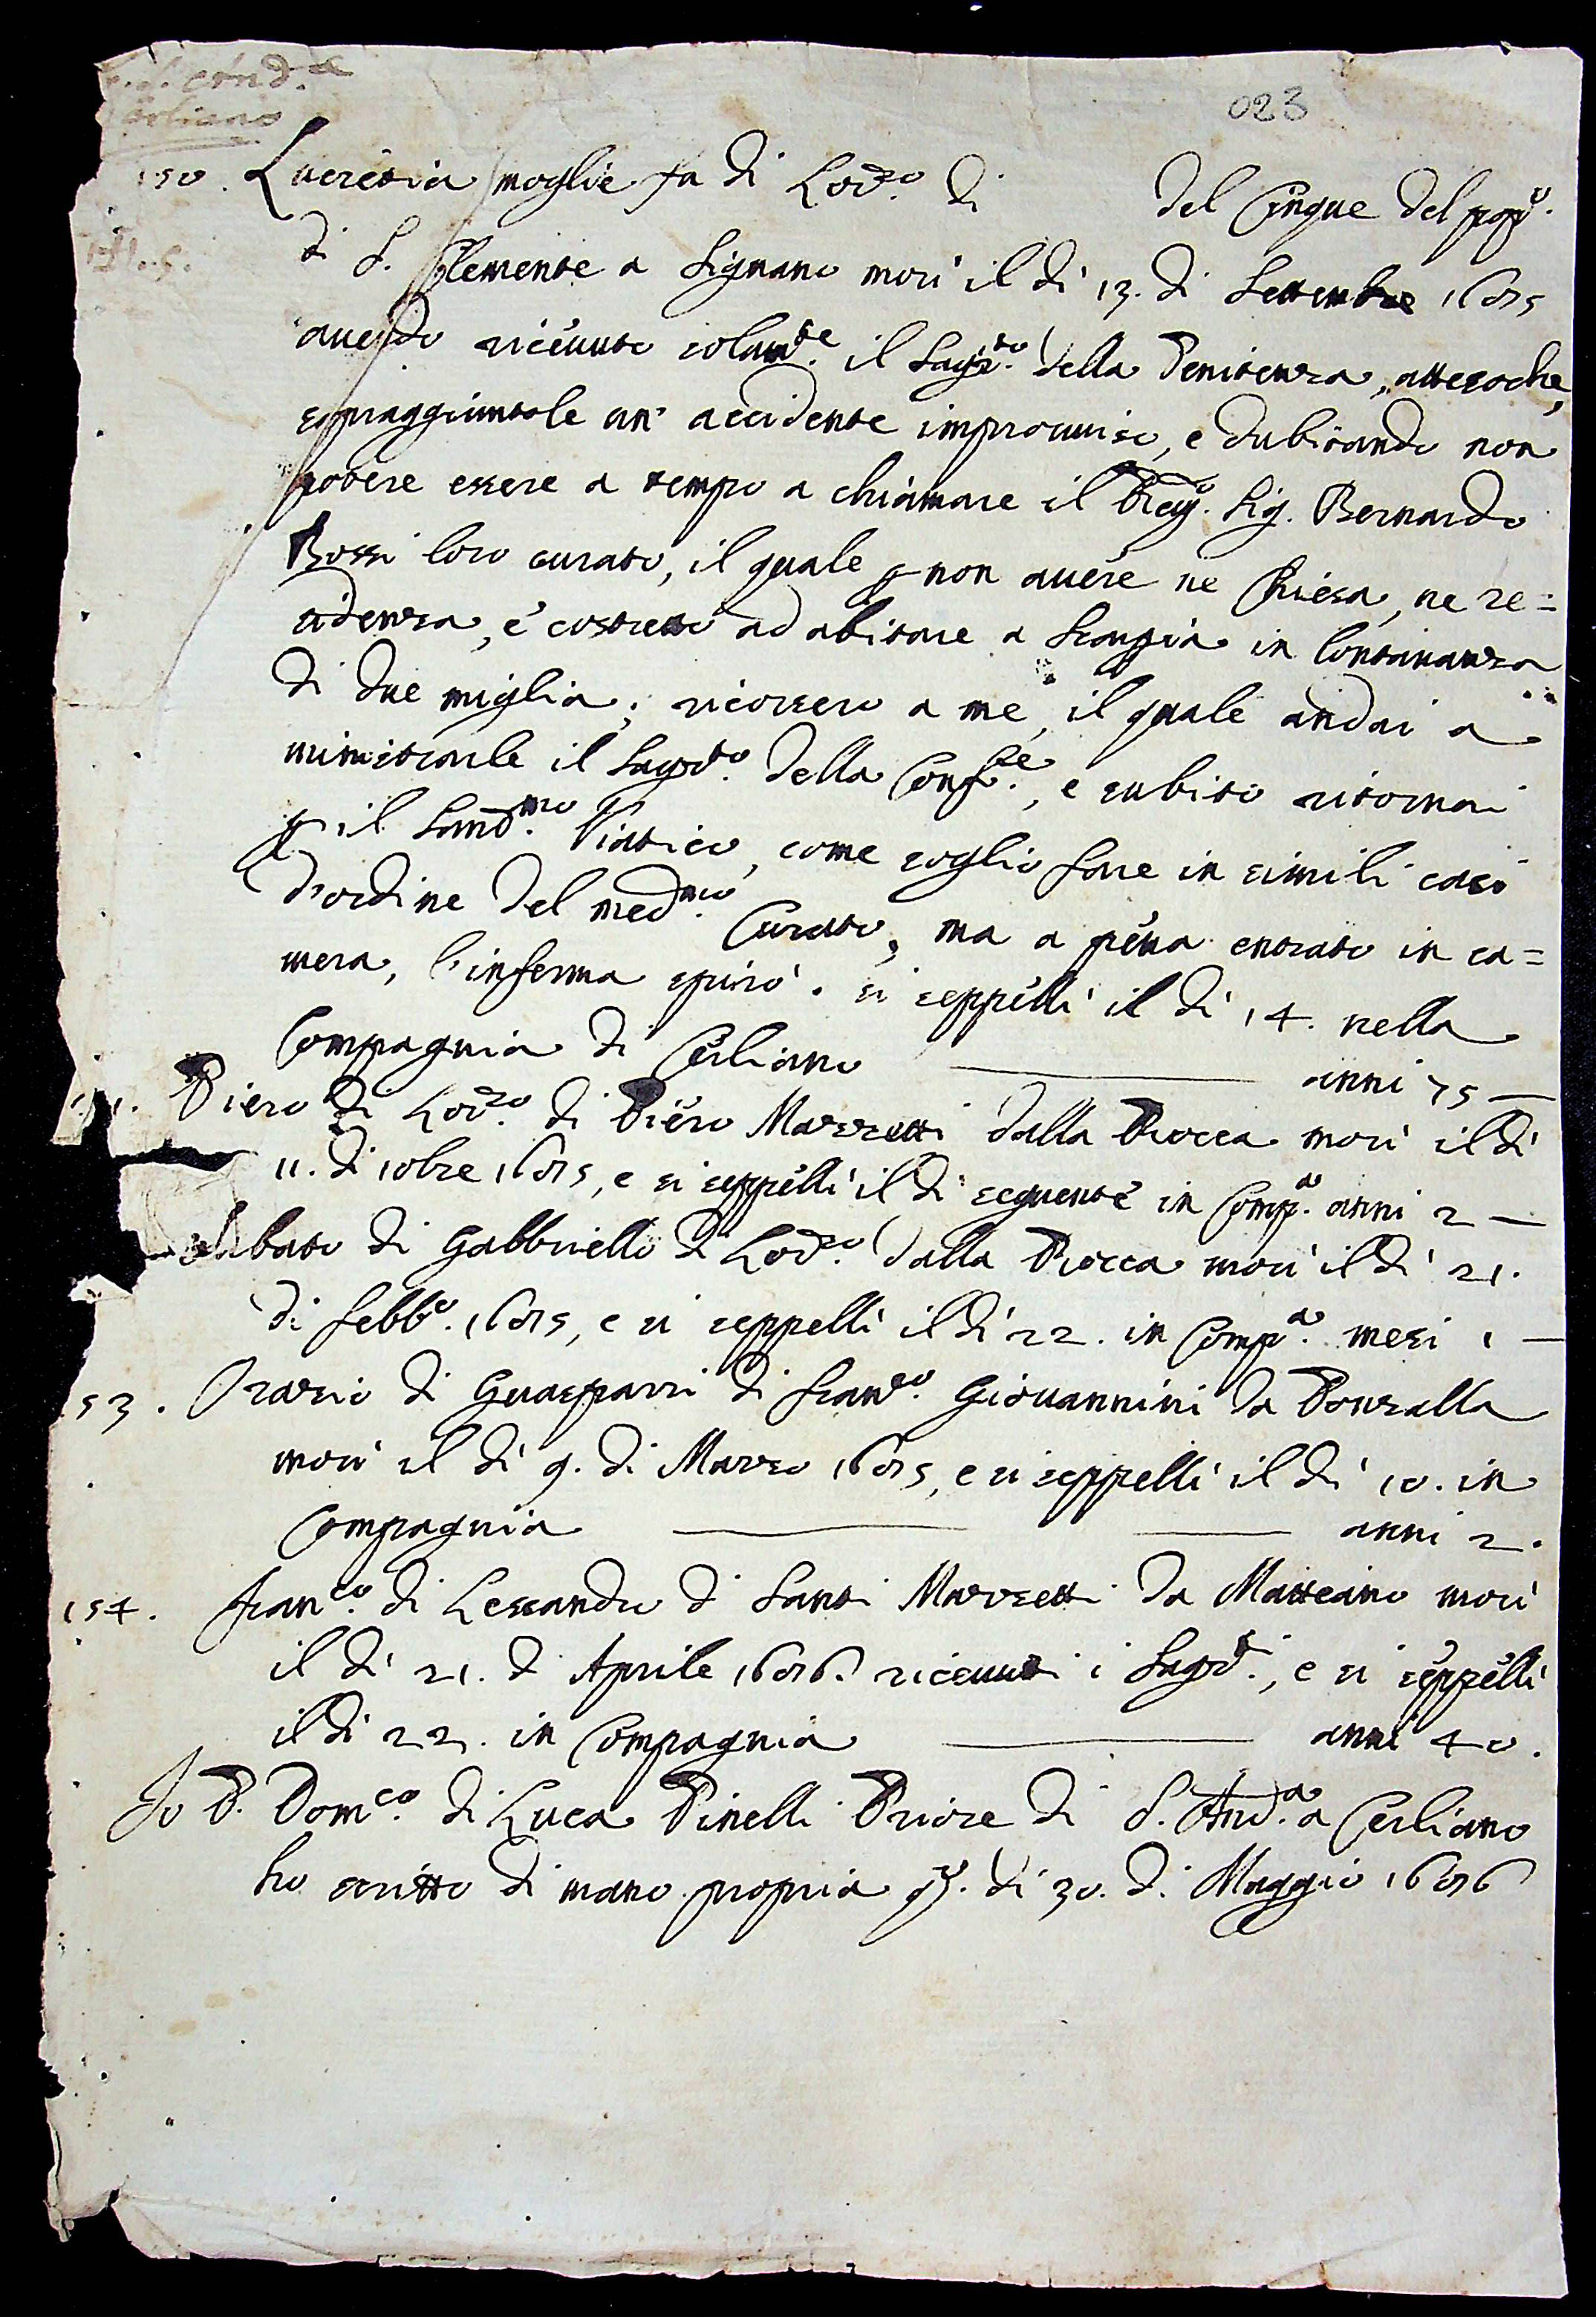 023
S. And.a
Cerliano
150. Lucrezia moglie fu di Lor.zo di del Cinque del pop.o
di S. Clemente a Signano morì il dì 13. di Settembre 1695
avendo ricevuto solam.te il Sagr.to della Penitenza, attesoche,
sopraggiuntole un' accidente improvviso, e dubitando non
potere essere a tempo a chiamare il Sig. Bernardo
Rossi loro curato, il quale p non avere ne Chiesa, ne re=
sidenza, è costretto ad abitare a Scarpia in lontananza
di due miglia; ricorsero a me, il quale andai a
ministrarle il Sagr.to della Conf.ne, e subito ritornai
p il Sant.mo Viatico, come soglio fare in simili casi
d'ordine del med.mo Curato, ma a pena entrato in ca=
mera, l'inferma spirò. si seppellì il dì 14. nella
Compagnia di Cerliano anni 75 —
151. Piero di Lor.zo di Piero Mazzetti dalla Rocca morì il dì
11. di 10bre 1695, e si seppellì il dì seguente in Comp.a anni 2 —
Abbato di Gabbriello di Lor.zo dalla Rocca morì il dì 21.
di febb.o 1695, e si seppellì il dì 22. in Comp.a mesi 1 —
53. Orazio di Guasparri di Fran.co Giovannini da Ponzalla
morì il dì 9. di Marzo 1695, e si seppellì il dì 10. in
Compagnia anni 2.
154. Fran.co di Lessandro di Santi Mazzetti da Matteano morì
il dì 21. di Aprile 1696. ricevuti i Sagr.ti, e si seppellì
il dì 22. in Compagnia anni 40.
Io P. Dom.co di Luca Pinelli Priore di S. And.a a Cerliano
ho scritto di mano propria q.o dì 30. di Maggio 1696